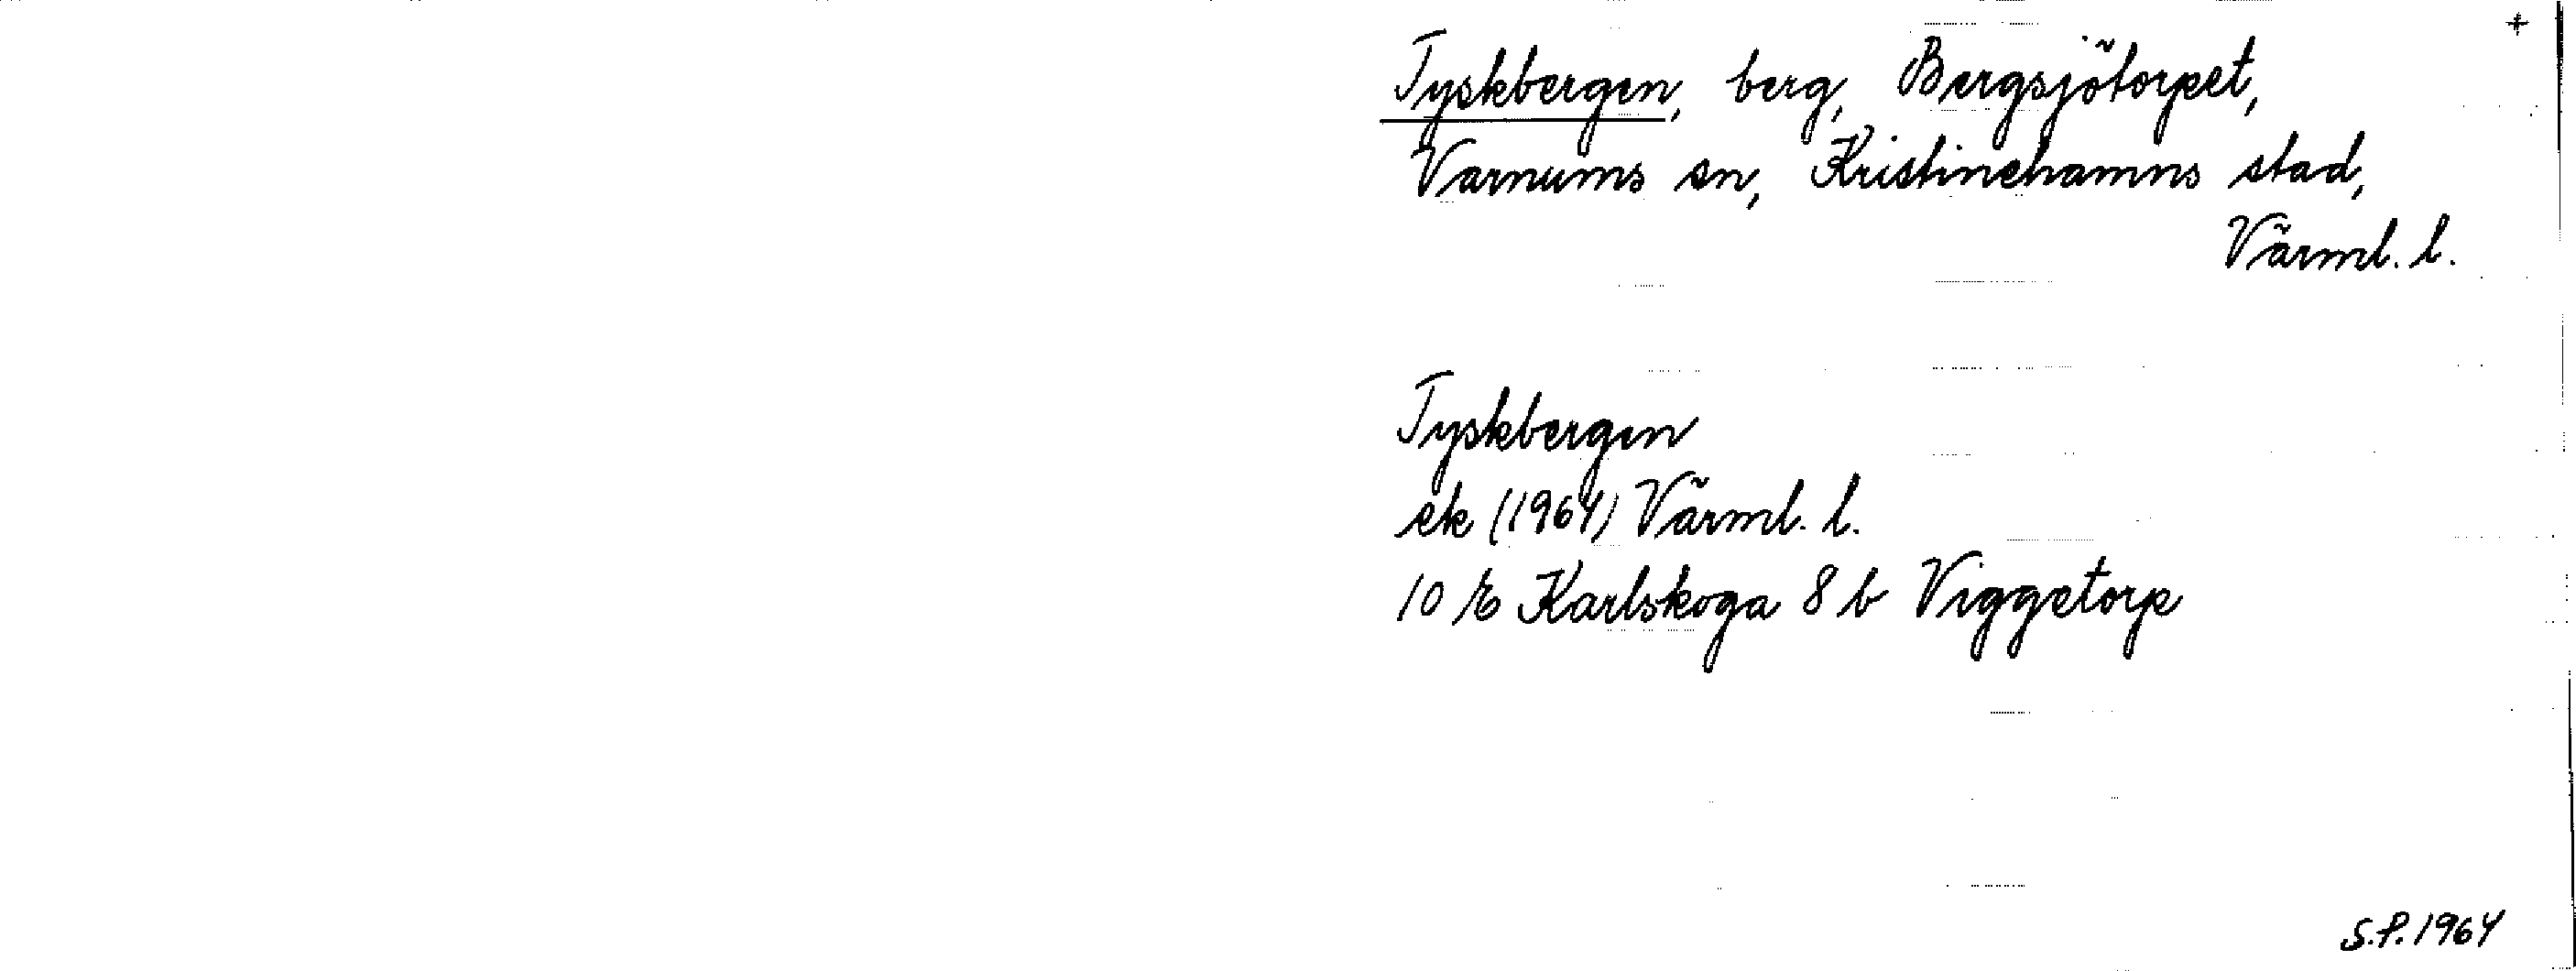 +
Tyskbergen, berg, Bergsjötorpet,
Varnums sn, Kristinehamns stad,
Värml. l.
Tyskbergen
ek (1964) Värml. l.
10 E Karlskoga 8 b Viggetorp
S.P. 1964